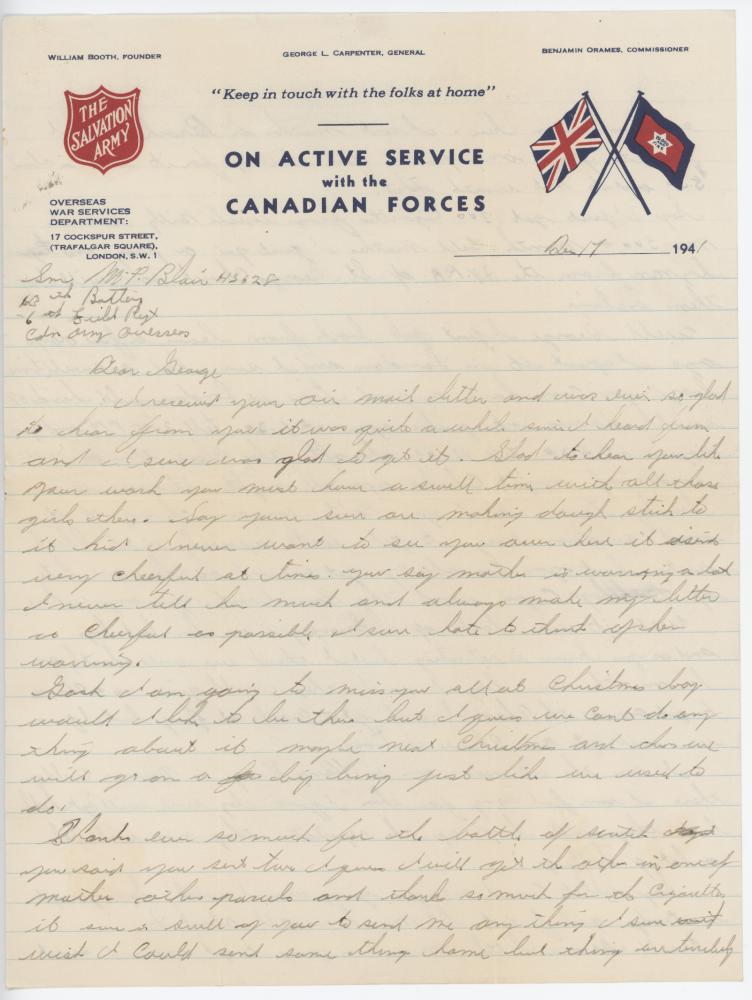 WILLIAM BOOTH, FOUNDER
GEORGE L. CARPENTER, GENERAL
BENJAMIN ORAMES, COMMISSIONER
THE
SALVATION
ARMY
"Keep in touch with the folks at home"
ON ACTIVE SERVICE
with the
CANADIAN FORCES
OVERSEAS
WAR SERVICES
DEPARTMENT:
17 COCKSPUR STREET,
(TRAFALGAR SQUARE),
LONDON, S.W. 1
Dec 17 1941
M. P. Blair
Battery
6 th Field Regt
Cdn Army Overseas
Dear George
I received your air mail letter and was ever so glad
to hear from you it was quite a while since I heard from
and I sure was glad to get it. Glad to hear you like
your work you must have a swell time with all those
girls there. Say you sure are making dough stick to
it kid I never want to see you over here it isint
very cheerful at times. you say mother is worrying a lot
I never tell her much and always make my letter
as cheerful as possible I sure hate to think of her
worrying.
Gosh I am going to miss you all at Christmas boy
would I like to be there but I guess we cant do any
thing about it maybe next Christmas and we
will go on a big bing just like we used to
do.
Thanks ever so much for the bottle of scotch
you said you sent two I guess I will get the other in one of
mother other parcels and thanks so much for the Cigarettes
it sure is swell of you to send me any thing I sure
wish I could send some thing home but thing